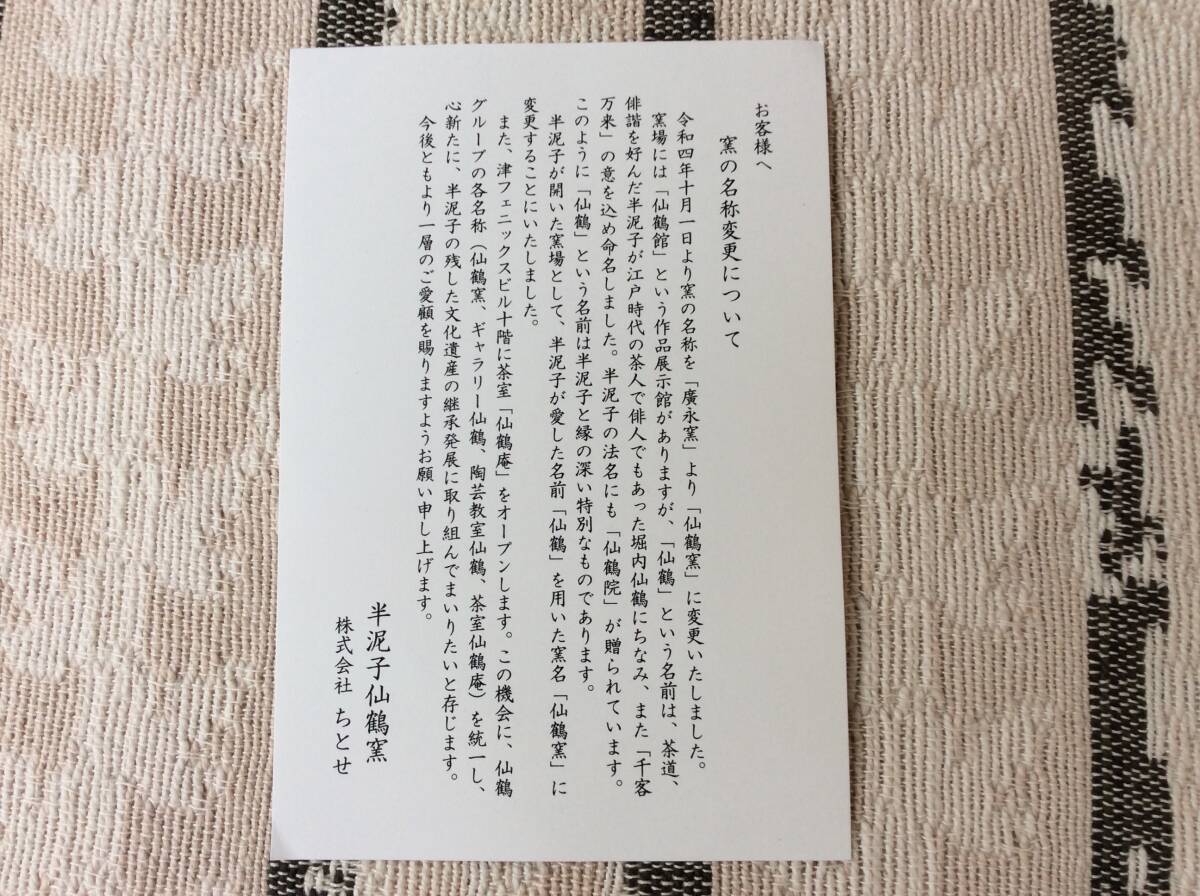 お客様へ
窯の名称変更について
令和四年十月一日より窯の名称を「廣永窯」より「仙鶴窯」に変更いたしました。
窯場には「仙鶴館」という作品展示館がありますが、「仙鶴」という名前は、茶道、
俳諧を好んだ半泥子が江戸時代の茶人で俳人でもあった堀内仙鶴にちなみ、また「千客
万来」の意を込め命名しました。半泥子の法名にも「仙鶴院」が贈られています。
このように「仙鶴」という名前は半泥子と縁の深い特別なものであります。
半泥子が開いた窯場として、半泥子が愛した名前「仙鶴」を用いた窯名「仙鶴窯」に
変更することにいたしました。
また、津フェニックスビル十階に茶室「仙鶴庵」をオープンします。この機会に、仙鶴
グループの各名称（仙鶴窯、ギャラリー仙鶴、陶芸教室仙鶴、茶室仙鶴庵）を統一し、
心新たに、半泥子の残した文化遺産の継承発展に取り組んでまいりたいと存じます。
今後ともより一層のご愛顧を賜りますようお願い申し上げます。
半泥子仙鶴窯
株式会社 ちとせ